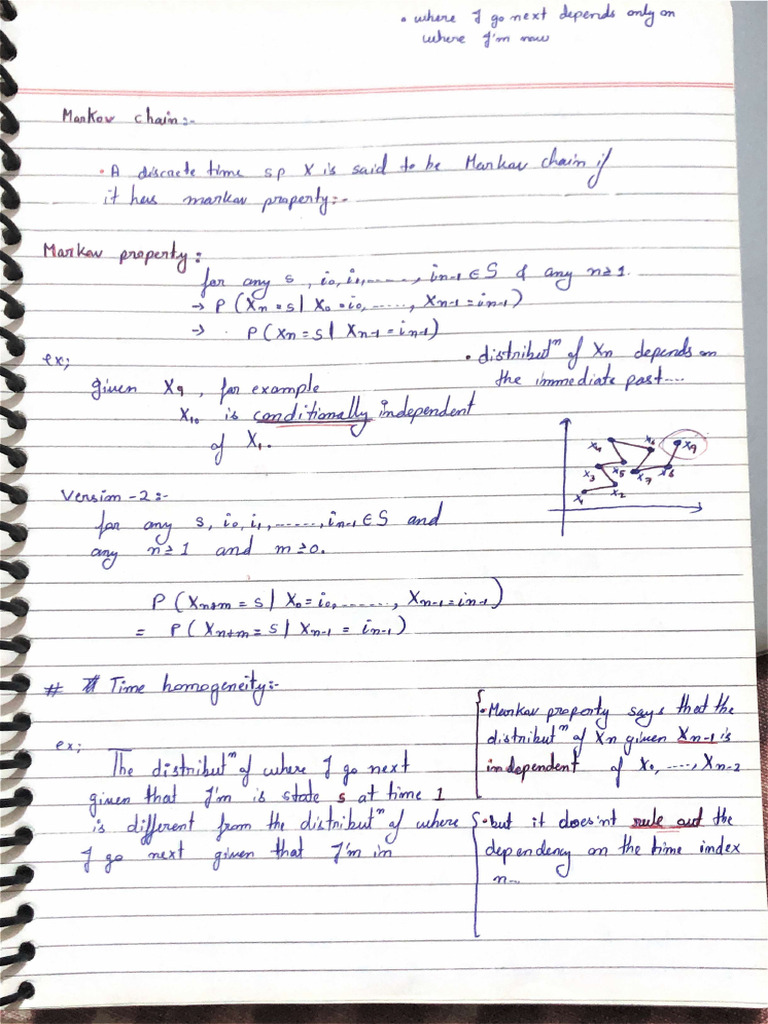 • where I go next depends only on
where I'm now
Markov chain:-
• A discrete time sp X is said to be Markov chain if
it has markov property:-
Markov property:
for any s, i0, i1,......., in-1 ∈ S & any n≥1.
→ P (Xn = s | X0 = i0, ......, Xn-1 = in-1)
→ . P (Xn = s | Xn-1 = in-1)
ex;
• distributⁿ of Xn depends on
the immediate past....
given X9, for example
X10 is conditionally independent
of X1.
X4 X6 X9
X3 X5 X7 X8
X1 X2
Version-2:-
for any s, i0, i1, ......., in-1 ∈ S and
any n≥1 and m≥0.
P (Xn+m = s | X0 = i0, ........, Xn-1 = in-1)
= P (Xn+m = s | Xn-1 = in-1)
# Time homogeneity:-
• Markov property says that the
distributⁿ of Xn given Xn-1 is
independent of X0, ...., Xn-2
ex;
The distributⁿ of where I go next
given that I'm is state s at time 1
is different from the distributⁿ of where
I go next given that I'm in
• but it does'nt rule out the
dependency on the time index
n..